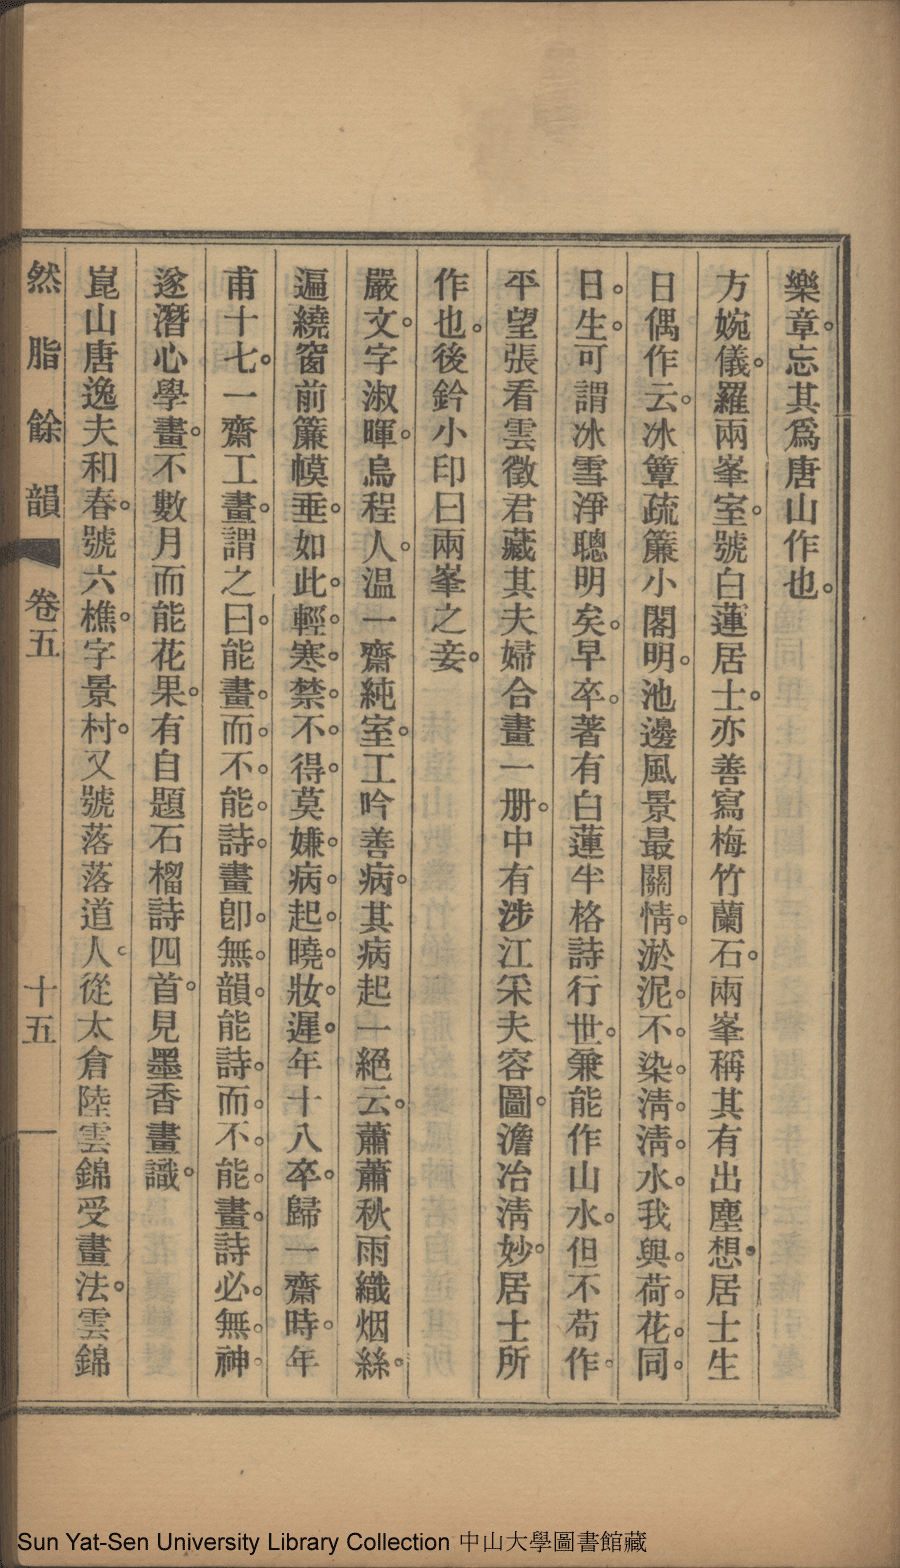 樂章。忘其爲唐山作也。
方婉儀。羅兩峯室。號白蓮居士。亦善寫梅竹蘭石。兩峯稱其有出塵想。居士生
日偶作云。冰簟疏簾小閣明。池邊風景最關情。淤泥。不。染。淸。淸。水。我。與。荷。花。同。
日。生。可謂冰雪淨聰明矣。早卒。著有白蓮半格詩行世。兼能作山水。但不苟作。
平望張看雲徵君藏其夫婦合畫一册。中有涉江采夫容圖。澹冶淸妙。居士所
作也。後鈐小印曰兩峯之妾。
嚴文。字淑暉。烏程人。温一齋純室。工吟善病。其病起一絕云。蕭蕭秋雨織烟絲。
遍繞窗前簾幙垂。如此。輕。寒。禁。不。得。莫嫌。病。起。曉。妝。遲。年十八卒。歸一齋時。年
甫十七。一齋工畫。謂之曰。能畫。而。不。能。詩。畫卽。無。韻。能詩。而。不。能。畫。詩必。無。神。
遂潛心學畫。不數月而能花果。有自題石榴詩四首。見墨香畫識。
崑山唐逸夫和春。號六樵。字景村。又號落落道人。從太倉陸雲錦受畫法。雲錦
然脂餘韻 卷五 十五
Sun Yat-Sen University Library Collection 中山大學圖書館藏